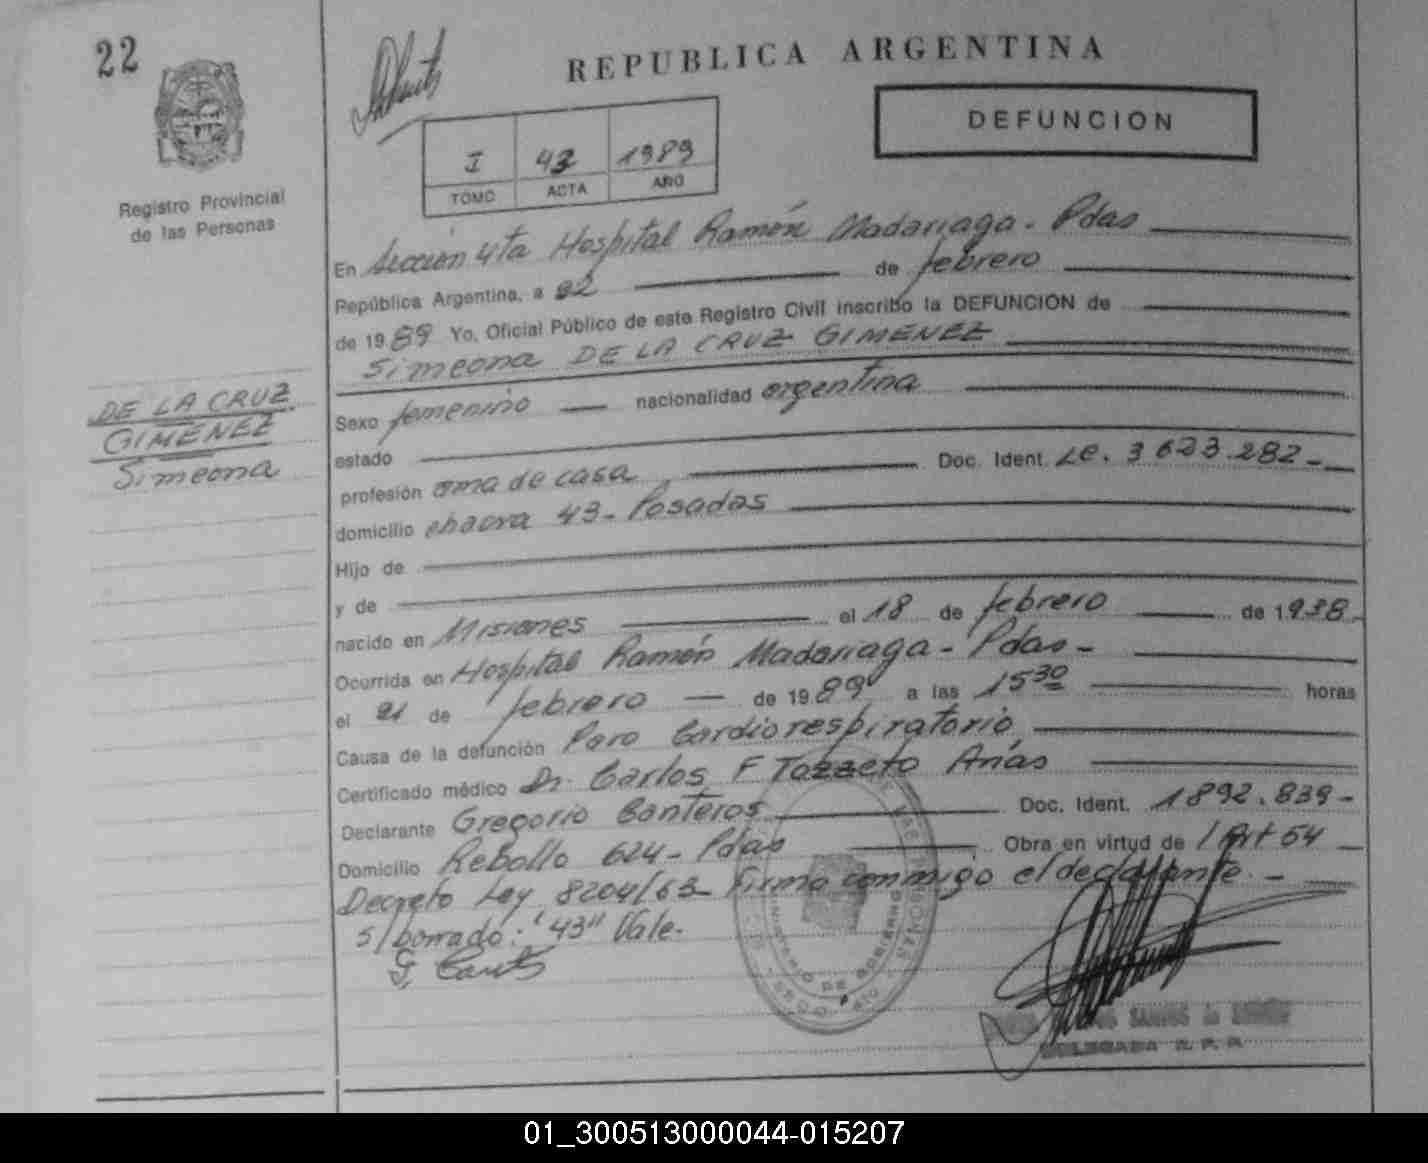 22
REPUBLICA ARGENTINA
DEFUNCION
I 43 1989
TOMO ACTA AÑO
Registro Provincial
de las Personas
En Sección 4ta Hospital Ramón Madariaga - Pdas
República Argentina, a 22 de febrero
de 1989 Yo, Oficial Público de este Registro Civil inscribo la DEFUNCION de
Simeona DE LA CRUZ GIMENEZ
DE LA CRUZ
GIMENEZ
Simeona
Sexo femenino nacionalidad argentina
estado
profesión ama de casa Doc. Ident. Lc. 3 623.282-
domicilio chacra 43- Posadas
Hijo de
y de
nacido en Misiones el 18 de febrero de 1.938-
Ocurrida en Hospital Ramón Madariaga - Pdas -
el 21 de febrero de 1989 a las 15 30 horas
Causa de la defunción Paro Cardiorespiratorio
Certificado médico Dr. Carlos F Tozzeto Arias
Declarante Gregorio Canteros Doc. Ident. 1892.839-
Domicilio Rebollo 624- Pdas Obra en virtud de l Art 54
Decreto Ley 8204/63- Firma conmigo el declarante -
s/borrado: "43" Vale.
DELEGADA R. P. P.
01_300513000044-015207